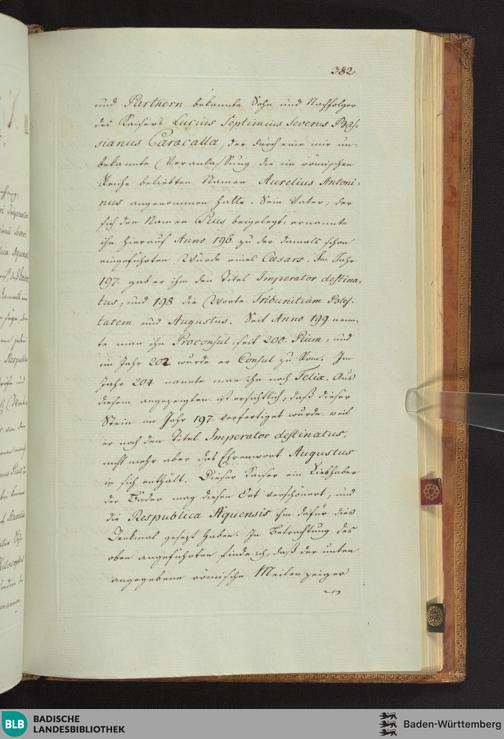 382
und Parthern bekannte Sohn und Nachfolger
des Kaisers Lucius Septimius Severus Bas-
sianus Caracalla, der durch eine mir un-
bekannte Veranlassung die im römischen
Reiche beliebten Namen Aurelius Antoni-
nus angenommen hatte. Sein Vater, der
sich den Namen Pius beigelegt, ernannte
ihn hierauf Anno 196 zu der damals schon
eingeführten Würde eines Cæsars. Im Jahr
197 gab er ihm den Titel Imperator destina-
tus, und 198 die Worte Tribunitiam Potes-
tatem und Augustus. Seit Anno 199 nenn-
te man ihn Proconsul, seit 200 Pium, und
im Jahr 202 wurde er Consul zu Rom. Im
Jahr 204 nannte man ihn noch Felix. Aus
diesem angezeigten ist ersichtlich, daß dieser
Stein im Jahr 197 verfertiget wurde, weil
er noch den Titel Imperator destinatus,
nicht mehr aber das Ehrenwort Augustus
in sich enthält. Dieser Kaiser ein Liebhaber
der Bäder mag diesen Ort verschönert, und
die Respublica Aquensis ihm dafür dies
Denkmal gesezt haben. In Betrachtung des
oben angeführten finde ich, daß der unten
angegebene römische Meilenzeiger
BLB BADISCHE
LANDESBIBLIOTHEK
Baden-Württemberg